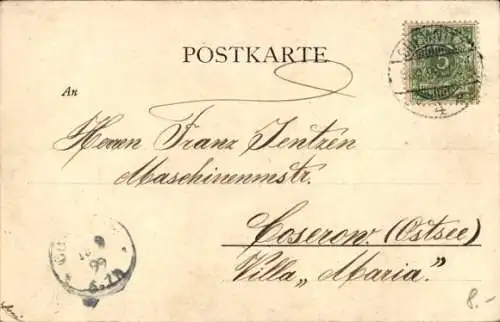 POSTKARTE
An
Herren Franz Jentzen
Maschinenmstr.
Coserow (Ostsee)
Villa „Maria."
99
8.-